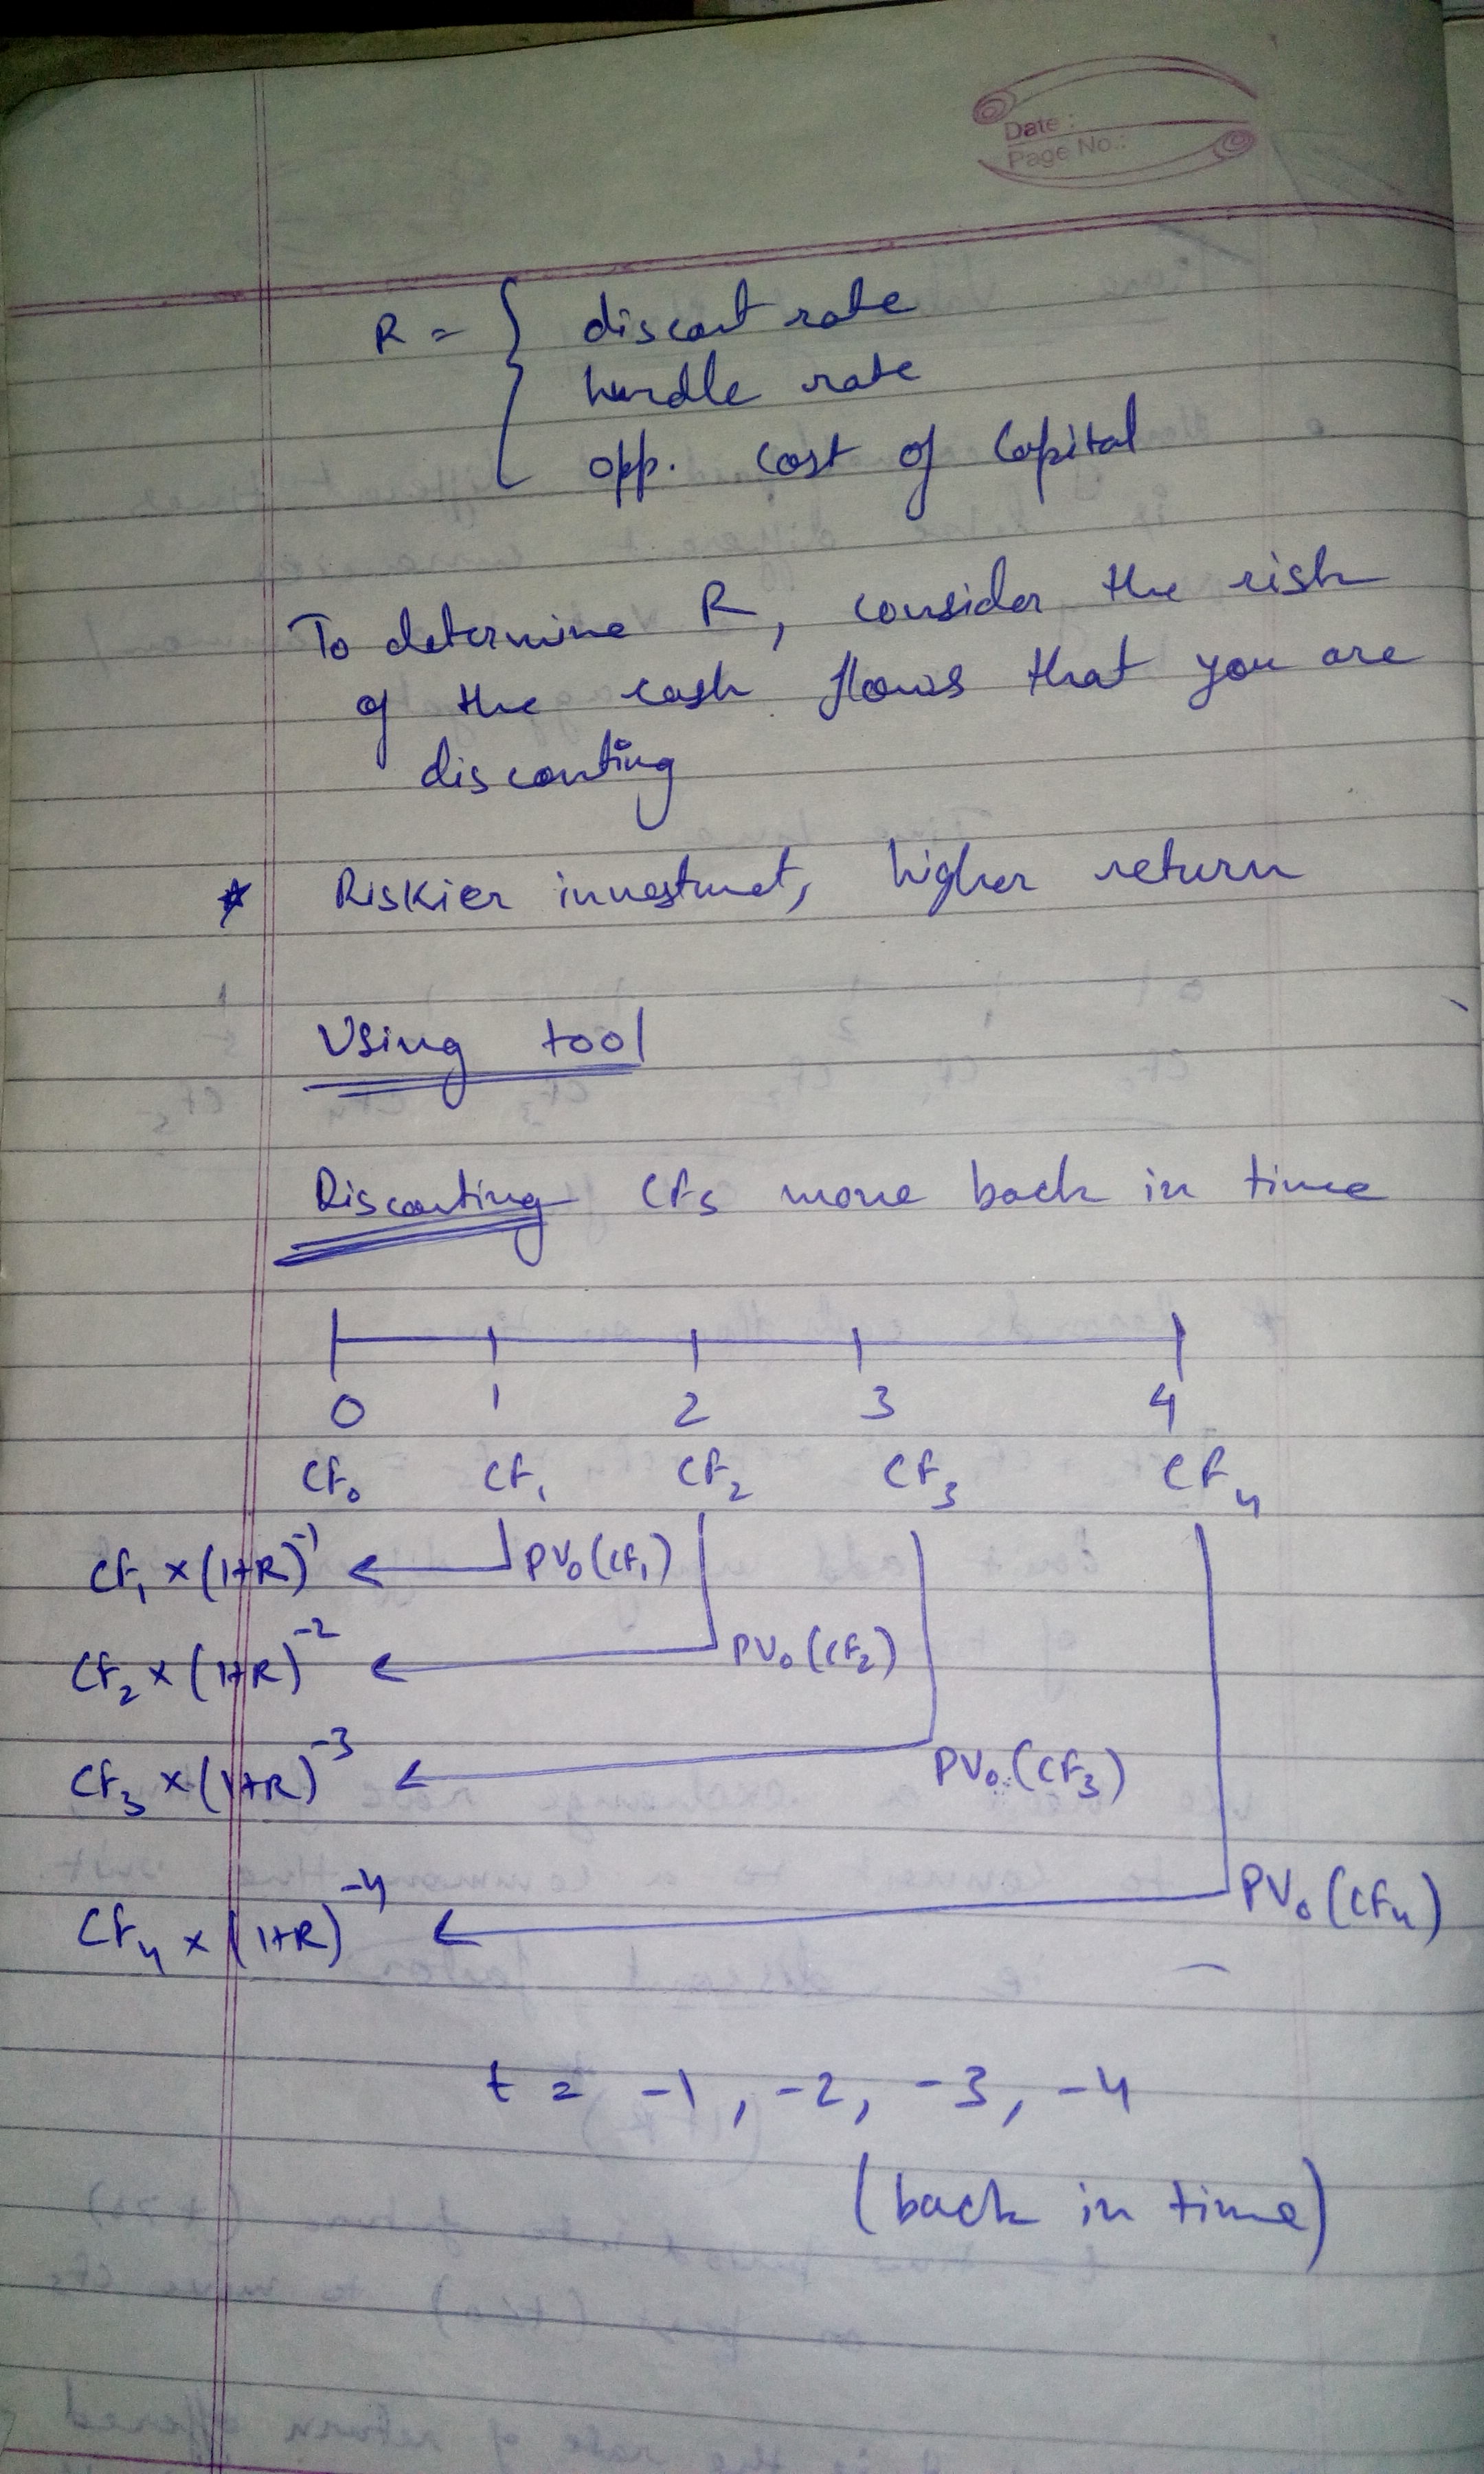 Date :
Page No.:
R = { discout rate
hurdle rate
opp. cost of Capital
To determine R, consider the risk
of the cash flows that you are
discouting
* Riskier investmet, higher return
Using tool
Discouting CFs move back in time
0 1 2 3 4
CF₀ CF₁ CF₂ CF₃ CF₄
CF₁ × (1+R)⁻¹ ← PV₀(CF₁)
CF₂ × (1+R)⁻² ← PV₀(CF₂)
CF₃ × (1+R)⁻³ ← PV₀(CF₃)
CF₄ × (1+R)⁻⁴ ← PV₀(CF₄)
t = -1, -2, -3, -4
(back in time)